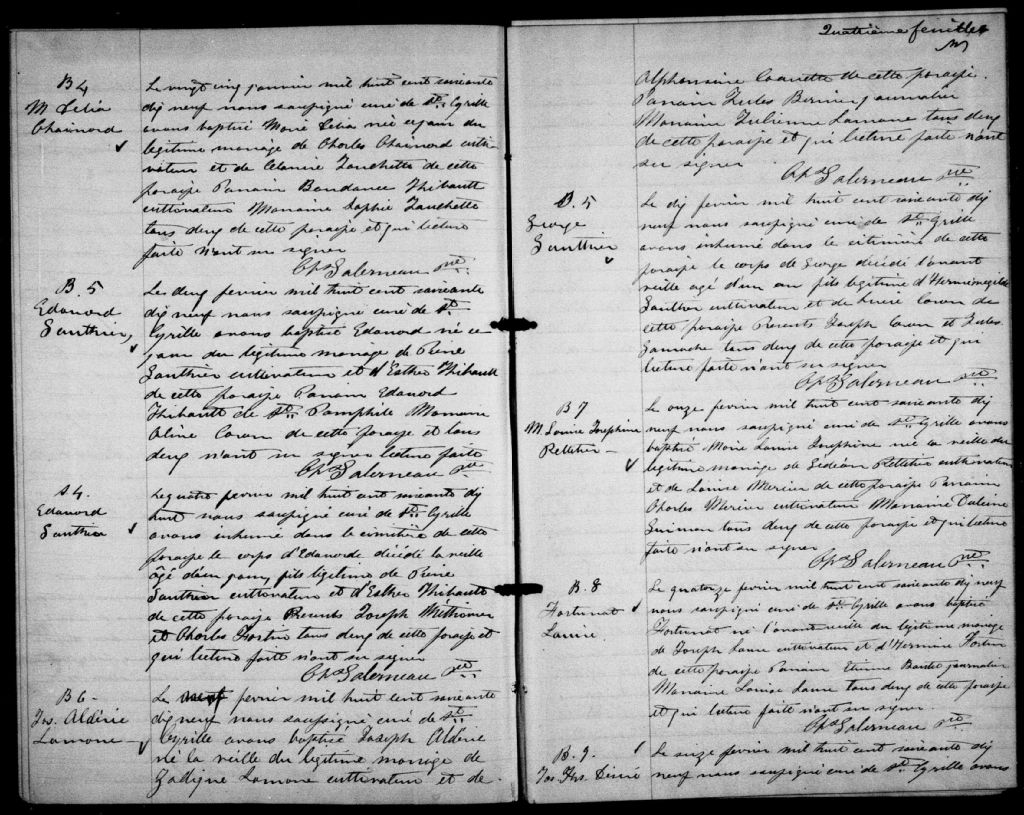 B 4
M Celia
Chainord
Le vingt cinq janvier mil huit cent soixante
dix neuf nous soussigné curé de St. Cyrille
avons baptisé Marie Celia née ce jour du
legitime mariage de Charles Chainord culti
vateur et de Clarice Fanchette de cette
paroisse Parrain Thibault
cultivateur Marraine Sophie Fanchette
tous deux de cette paroisse et qui lecture
faite n'ont su signer
Chs Galerneau Ptre
B. 5
Edouard
Gauthier
Le deux fevrier mil huit cent soixante
dix neuf nous soussigné curé de St.
Cyrille avons baptisé Edouard né ce
jour du legitime mariage de Rene
Gauthier cultivateur et d'Esther Thibault
de cette paroisse Parrain Edouard
Thibault de St. Pamphile Marraine
Aline Caron de cette paroisse et tous
deux n'ont su signer lecture faite
Chs Galerneau Ptre
S 4.
Edouard
Gauthier
Le quatre fevrier mil huit cent soixante dix
huit nous soussigné curé de St. Cyrille
avons inhumé dans le cimitière de cette
paroisse le corps d'Edouard décédé la veille
âgé d'un jour, fils légitime de Rene
Gauthier cultivateur et d'Esther Thibault
de cette paroisse Presents Joseph
et Charles Fortin tous deux de cette paroisse et
qui lecture faite n'ont su signer
Chs Galerneau Ptre
B 6.
Jos. Alderie
Lamone
Le neuf fevrier mil huit cent soixante
dix neuf nous soussigné curé de St.
Cyrille avons baptisé Joseph Alderie
né la veille du légitime mariage de
Lamone cultivateur et de
Quatrième feuillet
Alphonsine de cette paroisse.
Parrain Jules Bernier journalier
Marraine Julienne Lamone tous deux
de cette paroisse et qui lecture faite n'ont
su signer
Chs Galerneau Ptre
B. 5
George
Gauthier
Le dix fevrier mil huit cent soixante dix
neuf nous soussigné curé de St. Cyrille
avons inhumé dans le cimitière de cette
paroisse le corps de George décédé l'avant
veille agé d'un an fils legitime d'Hermenegilde
Gauthier cultivateur et de Caron de
cette paroisse Presents Joseph Caron et Jules
Gamache tous deux de cette paroisse et qui
lecture faite n'ont su signer
Chs Galerneau Ptre
B 7
M. Louise Josephine
Pelletier
Le onze fevrier mil huit cent soixante dix
neuf nous soussigné curé de St. Cyrille avons
baptisé Marie Louise Josephine née la veille du
legitime mariage de Gedéon Pelletier cultivateur
et de Louise Mercier de cette paroisse Parrain
Charles Mercier cultivateur Marraine
tous deux de cette paroisse et qui lecture
faite n'ont su signer
Chs Galerneau Ptre
B. 8
Fortunat
Laurie
Le quatorze fevrier mil huit cent soixante dix neuf
nous soussigné curé de St. Cyrille avons baptisé
Fortunat né l'avant veille du legitime mariage
de Joseph cultivateur et d'Hermine Fortin
de cette paroisse Parrain Etienne journalier
Marraine Louise tous deux de cette paroisse
et qui lecture faite n'ont su signer.
Chs Galerneau Ptre
B. 9.
Jos. Frs. Désiré
Le seize fevrier mil huit cent soixante dix
neuf nous soussigné curé de St. Cyrille avons